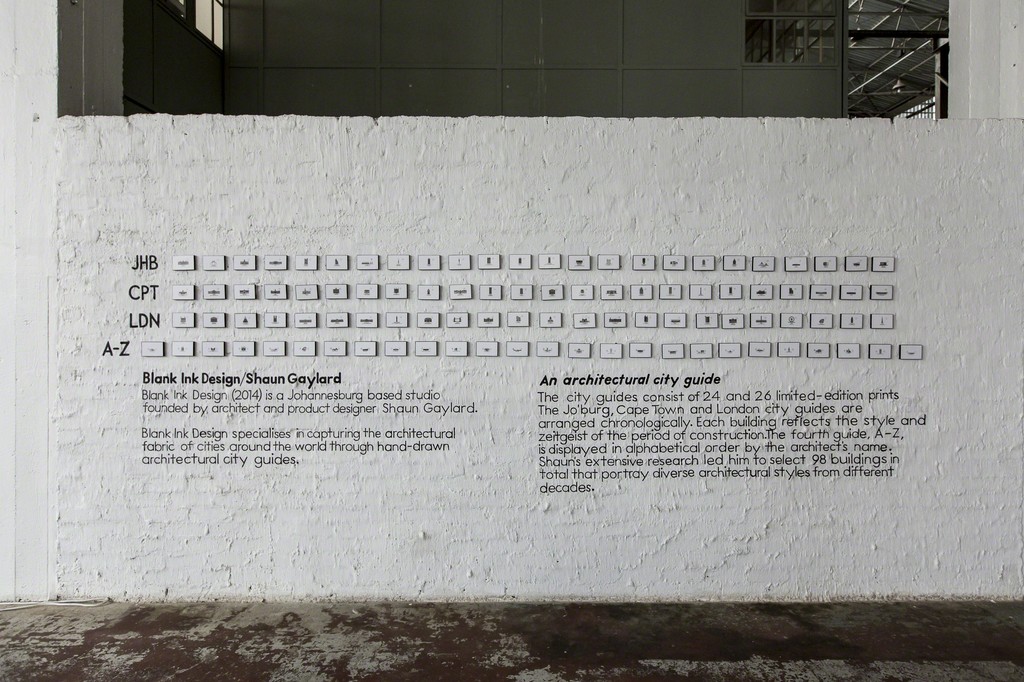 JHB
CPT
LDN
A-Z
Blank Ink Design/Shaun Gaylard
Blank Ink Design (2014) is a Johannesburg based studio
founded by architect and product designer Shaun Gaylard.
Blank Ink Design specialises in capturing the architectural
fabric of cities around the world through hand-drawn
architectural city guides.
An architectural city guide
The city guides consist of 24 and 26 limited-edition prints
The Jo'burg, Cape Town and London city guides are
arranged chronologically. Each building reflects the style and
zeitgeist of the period of construction.The fourth guide, A-Z,
is displayed in alphabetical order by the architect's name.
Shaun's extensive research led him to select 98 buildings in
total that portray diverse architectural styles from different
decades.